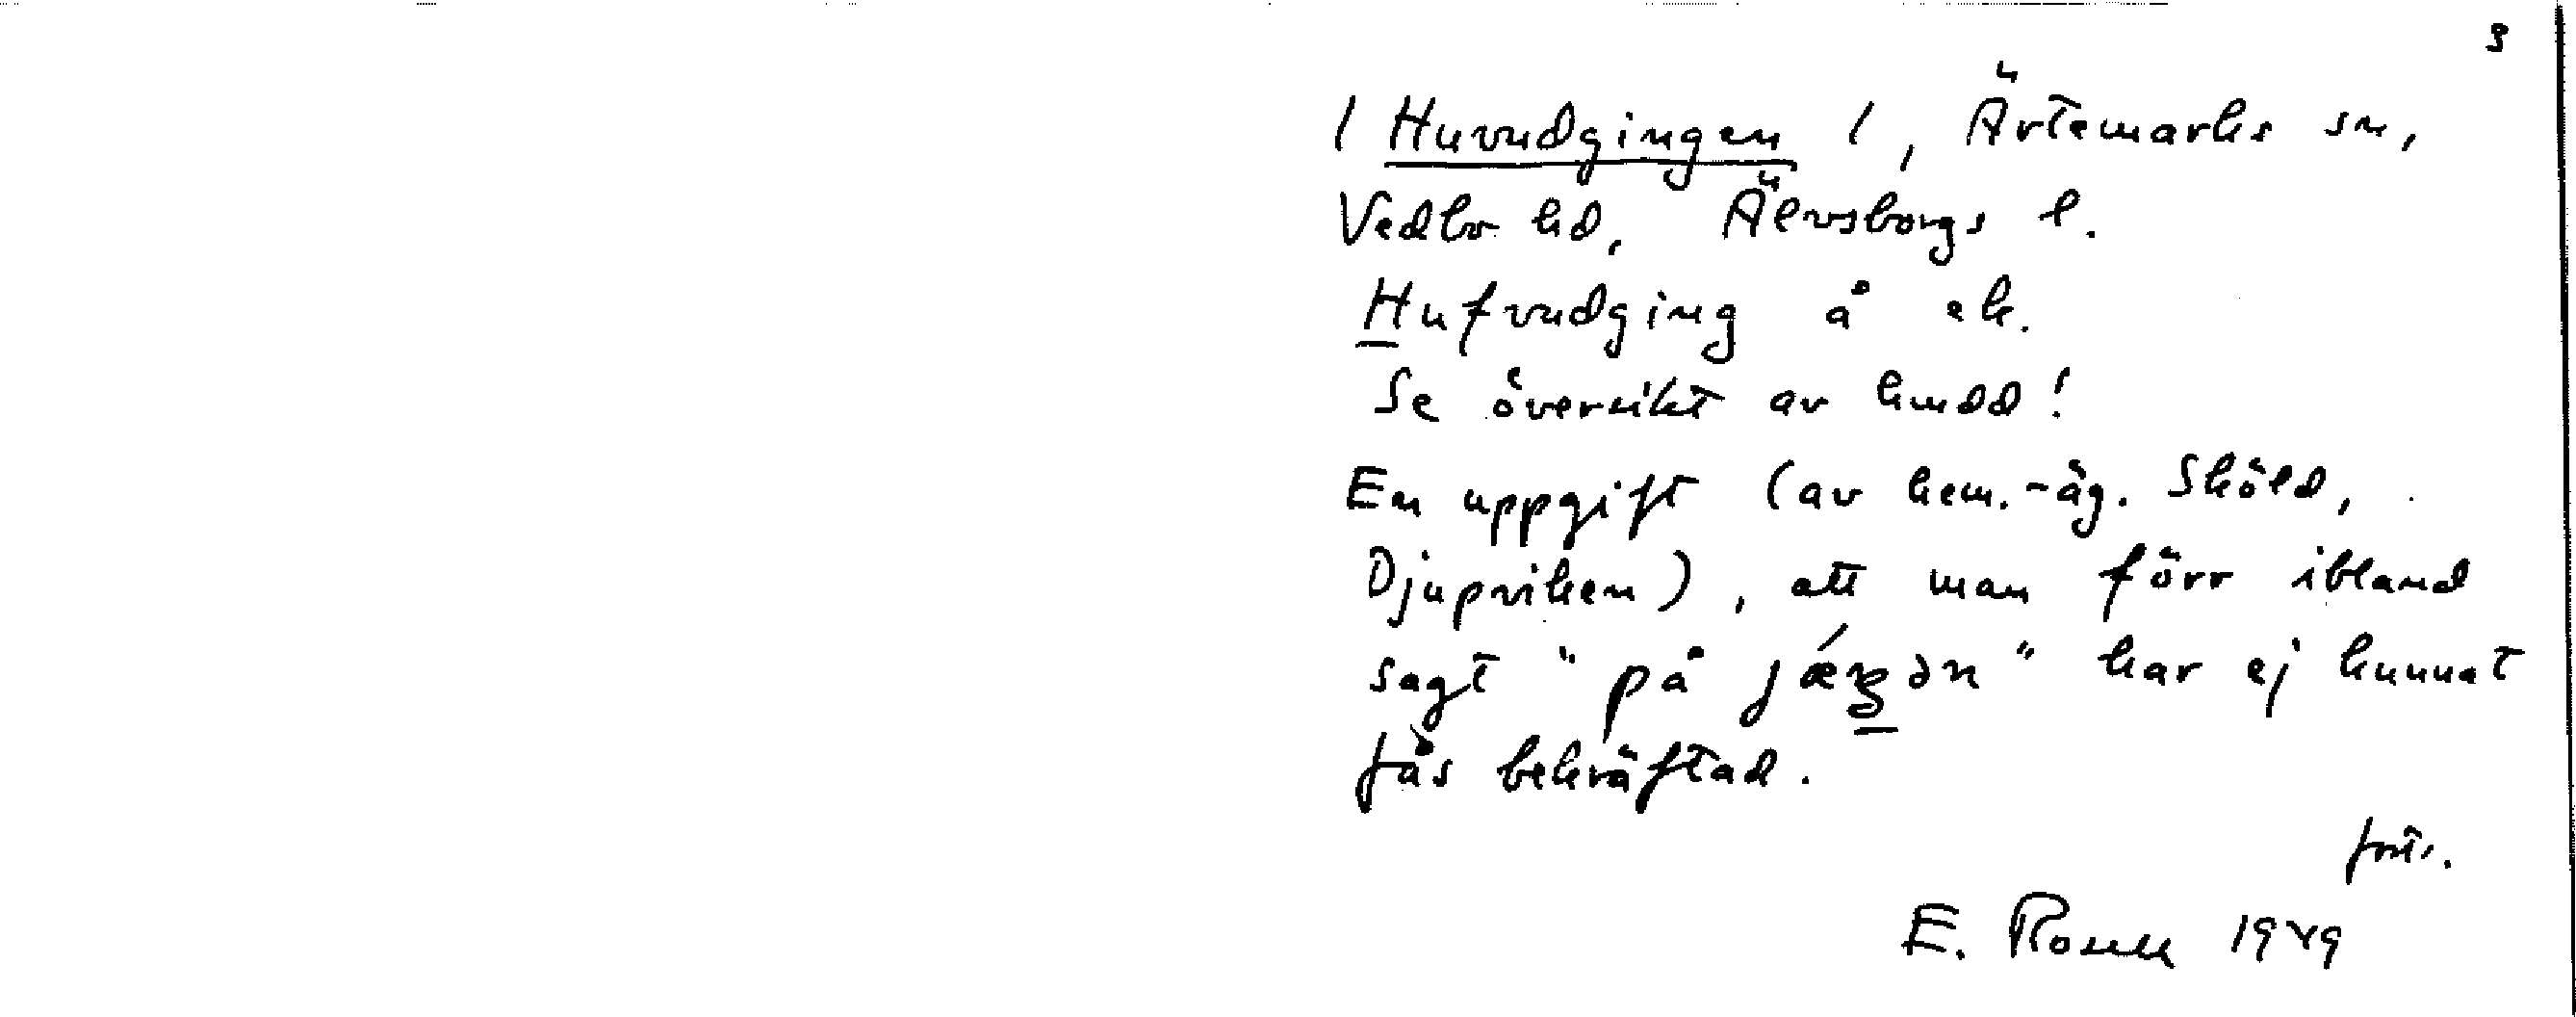 3
/ Huvudgingen /, Ärtemarks sn,
Vedbo hd, Älvsborgs l.
Hufvudging å ek.
Se översikt av hmdd!
En uppgift (av hem.-äg. Sköld,
Djupviken), att man förr ibland
sagt "på jæŋən" har ej kunnat
fås bekräftad.
forts.
E. 19